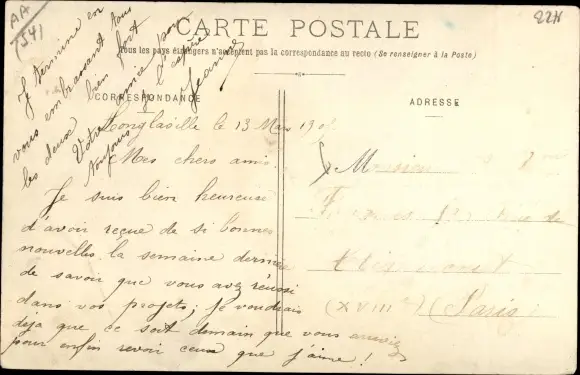 AA
1541
22H
CARTE POSTALE
Tous les pays étrangers n'acceptent pas la correspondance au recto (Se renseigner à la Poste)
CORRESPONDANCE
ADRESSE
le 13 Mars 190
Mes chers amis.
Je suis bien heureuse
d'avoir reçue de si bonnes
nouvelles la semaine dernière
de savoir que vous avez réussi
dans vos projets; je voudrais
deja que ce soit demain que vous arriviez
pour enfin revoir ceux que j'aime!
Je termine en
vous embrassant tous
les deux bien fort
Votre amie pour
toujours je l'espère
Jeanne
Monsieur
de
(XVIII e) (Paris)